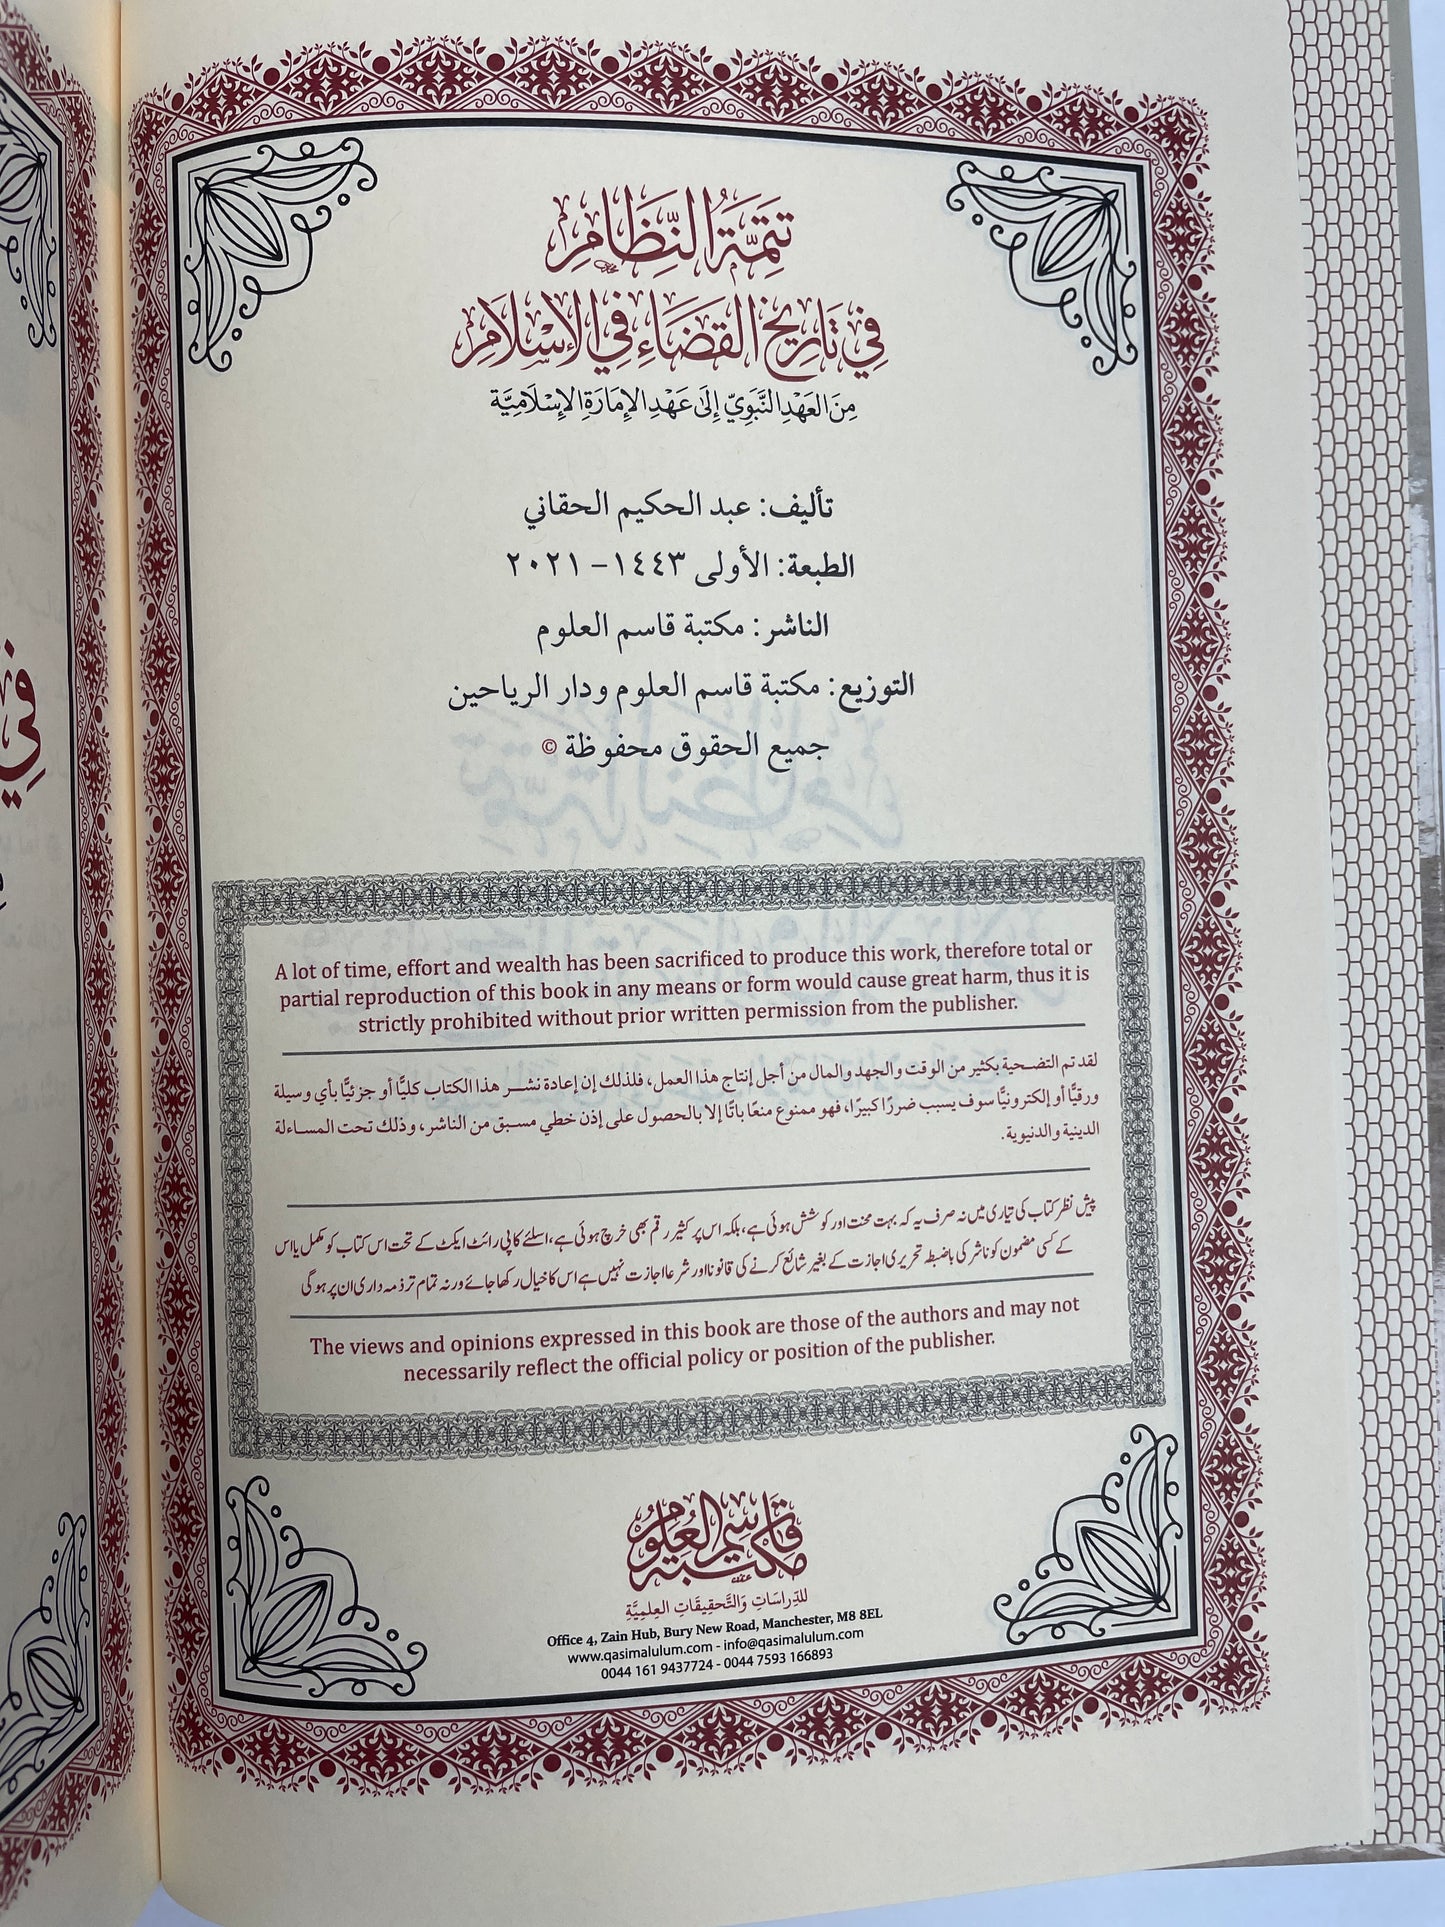 تَتِمَّةُ النِّظَامِ
فِي تَارِيخِ القَضَاءِ فِي الإِسْلَامِ
مِنَ العَهْدِ النَّبَوِيّ إِلَى عَهْدِ الإِمَارَةِ الإِسْلَامِيَّة
تأليف: عبد الحكيم الحقاني
الطبعة: الأولى ١٤٤٣ – ٢٠٢١
الناشر: مكتبة قاسم العلوم
التوزيع: مكتبة قاسم العلوم ودار الرياحين
جميع الحقوق محفوظة ©
A lot of time, effort and wealth has been sacrificed to produce this work, therefore total or
partial reproduction of this book in any means or form would cause great harm, thus it is
strictly prohibited without prior written permission from the publisher.
لقد تم التضحية بكثير من الوقت والجهد والمال من أجل إنتاج هذا العمل، فلذلك إن إعادة نشر هذا الكتاب كليًّا أو جزئيًّا بأي وسيلة
ورقيًّا أو إلكترونيًّا سوف يسبب ضررًا كبيرًا، فهو ممنوع منعًا باتًا إلا بالحصول على إذن خطي مسبق من الناشر، وذلك تحت المساءلة
الدينية والدنيوية.
پیش نظر کتاب کی تیاری میں نہ صرف یہ کہ بہت محنت اور کوشش ہوئی ہے، بلکہ اس پر کثیر رقم بھی خرچ ہوئی ہے، اسلئے کاپی رائٹ ایکٹ کے تحت اس کتاب کو مکمل یا اس
کے کسی مضمون کو ناشر کی باضبطہ تحریری اجازت کے بغیر شائع کرنے کی قانونا اور شرعا اجازت نہیں ہے اس کا خیال رکھا جائے ورنہ تمام تر ذمہ داری ان پر ہوگی
The views and opinions expressed in this book are those of the authors and may not
necessarily reflect the official policy or position of the publisher.
مكتبة قاسم العلوم
للدِّرَاسَاتِ وَالتَّحقِيقَاتِ العِلمِيَّةِ
Office 4, Zain Hub, Bury New Road, Manchester, M8 8EL
www.qasimalulum.com - info@qasimalulum.com
0044 161 9437724 - 0044 7593 166893